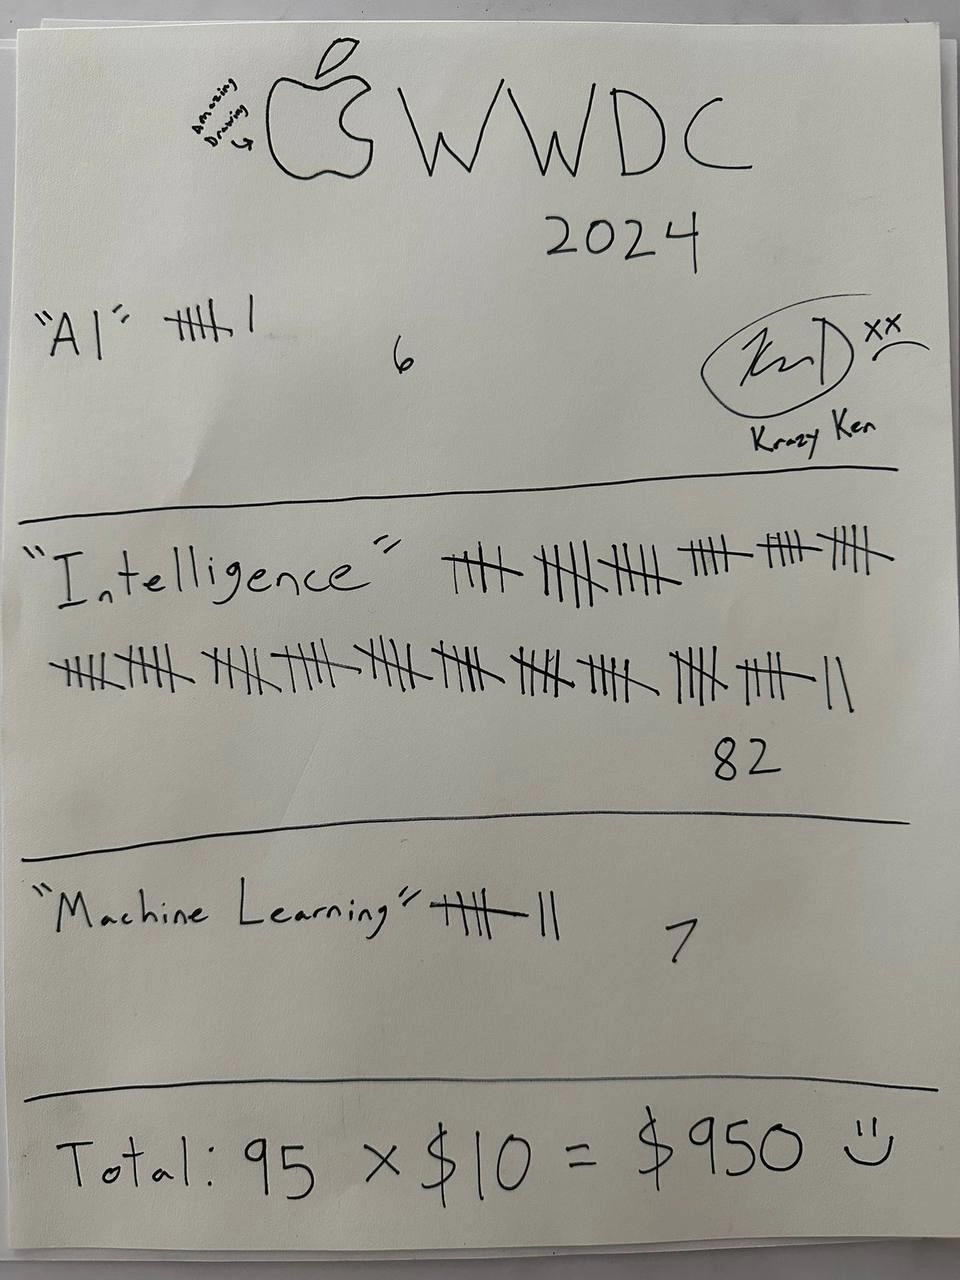 Amazing
Drawing
WWDC
2024
"AI"
6
Krazy Ken
"Intelligence"
82
"Machine Learning"
7
Total: 95 x $10 = $950